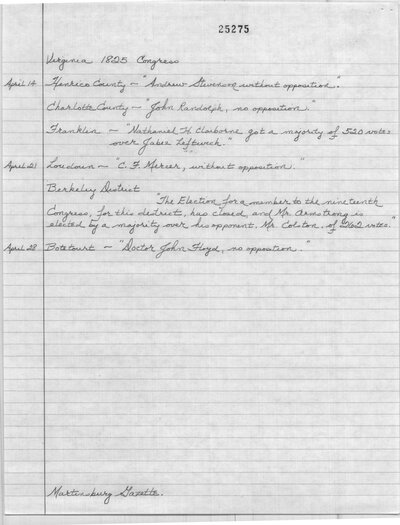 25275
Virginia 1825 Congress
April 14 Henrico County - "Andrew Stevenson without opposition."
Charlotte County - "John Randolph, no opposition."
Franklin - "Nathaniel H. Claiborne got a majority of 520 votes
over Jabez Leftwich."
April 21 Loudoun - "C. F. Mercer, without opposition."
Berkeley District
"The Election for a member to the nineteenth
Congress, for this district, has closed, and Mr. Armstrong is
elected by a majority over his opponent, Mr. Colston, of 262 votes."
April 28 Botetourt - "Doctor John Floyd, no opposition."
Martinsburg Gazette.